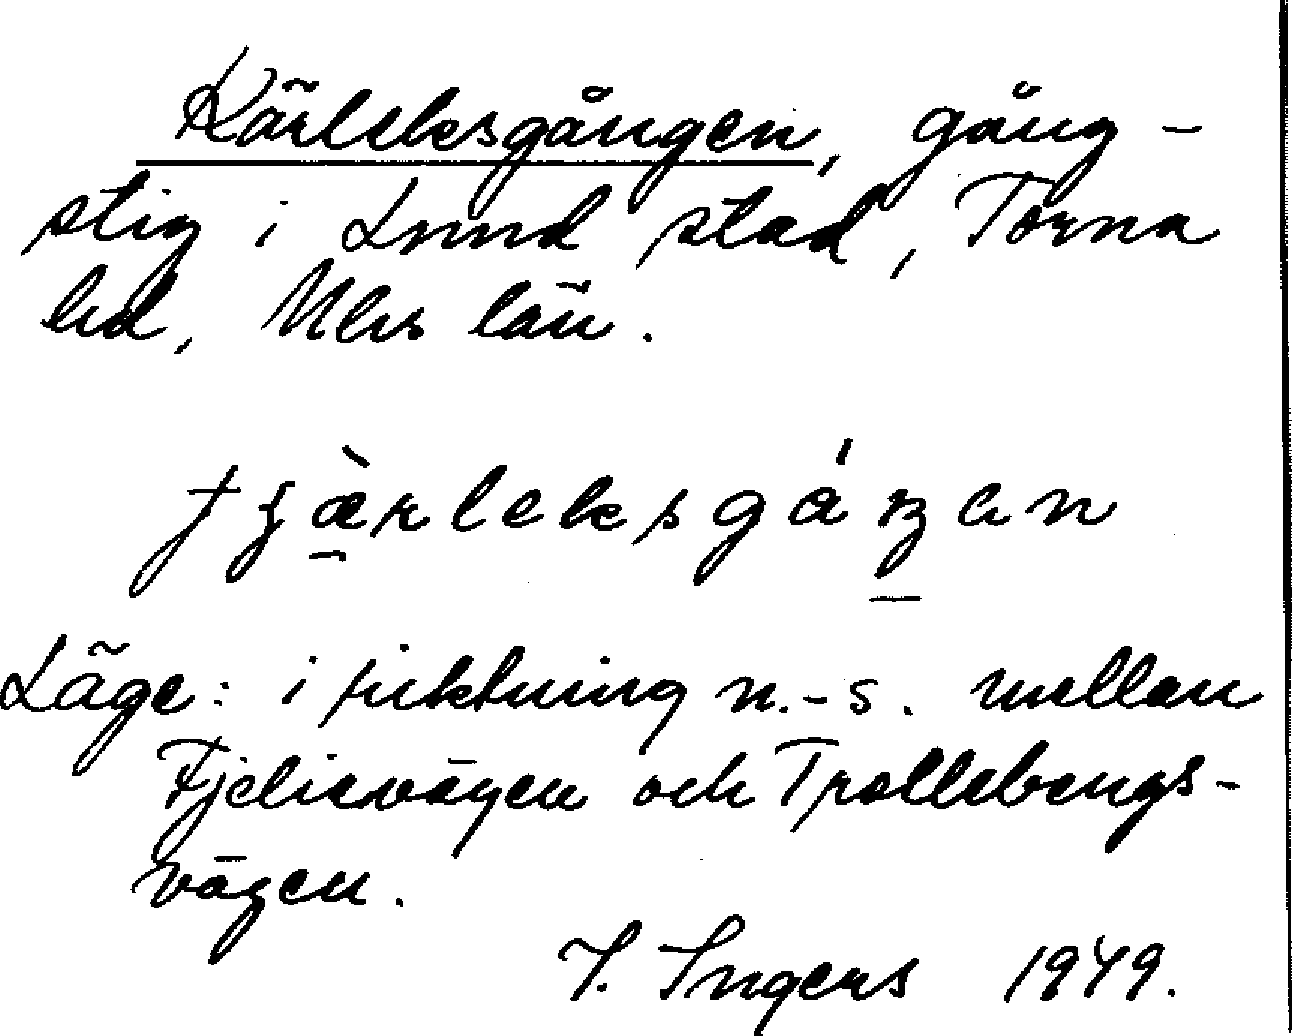 Kärleksgången, gång-
stig i Lund stad, Torna
hd, Mlhs län.
Läge: i riktning n.-s. mellan
Fjelievägen och Trollebergs-
vägen.
I. Ingers 1949.